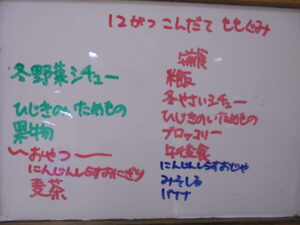 12がつ こんだて ももぐみ
冬野菜シチュー
ひじきのいためもの
果物
〜おやつ〜
にんじんしらすおにぎり
麦茶
冬やさいシチュー
ひじきのいためもの
ブロッコリー
にんじんしらすおじや
みそしる
バナナ